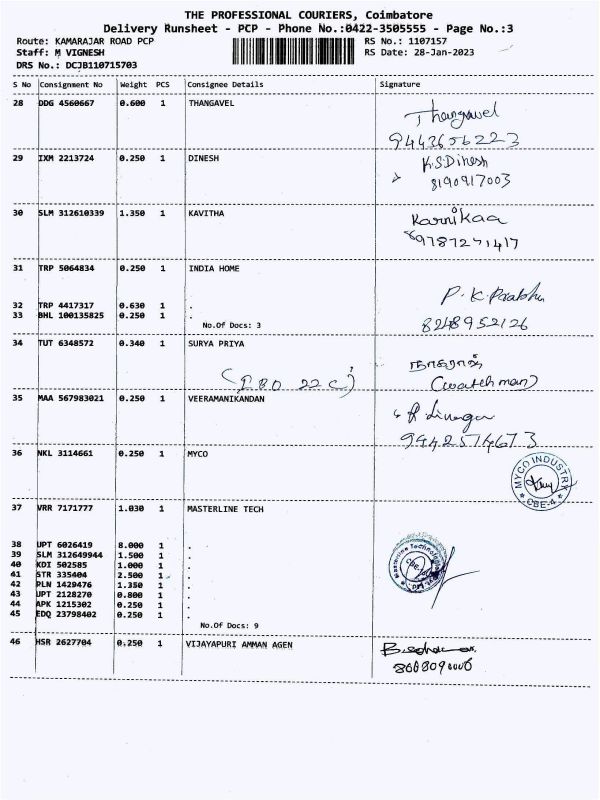 THE PROFESSIONAL COURIERS, Coimbatore
Delivery Runsheet - PCP - Phone No.:0422-3505555 - Page No.:3
Route: KAMARAJAR ROAD PCP RS No.: 1107157
Staff: M VIGNESH RS Date: 28-Jan-2023
DRS No.: DCJB110715703
S No Consignment No Weight PCS Consignee Details Signature
28 DDG 4560667 0.600 1 THANGAVEL Thangavel
9443656223
29 IXM 2213724 0.250 1 DINESH K.S.Dinesh
8190917003
30 SLM 312610339 1.350 1 KAVITHA Karnikaa
9787271417
31 TRP 5064834 0.250 1 INDIA HOME
P.K.Prabhu
32 TRP 4417317 0.630 1 .
33 BHL 100135825 0.250 1 .
No.Of Docs: 3 8248952126
34 TUT 6348572 0.340 1 SURYA PRIYA நாகராஜ்
(watchman)
35 MAA 567983021 0.250 1 VEERAMANIKANDAN
9442574673
36 NKL 3114661 0.250 1 MYCO
MYCO INDUSTRY
CBE-4
37 VRR 7171777 1.030 1 MASTERLINE TECH
Masterline Technology
38 UPT 6026419 8.000 1 .
39 SLM 312649944 1.500 1 .
40 KDI 502585 1.000 1 .
41 STR 335404 2.500 1 .
42 PLN 1429476 1.350 1 .
43 UPT 2128270 0.800 1 .
44 APK 1215302 0.250 1 .
45 EDQ 23798402 0.250 1 .
No.Of Docs: 9
46 HSR 2627704 0.250 1 VIJAYAPURI AMMAN AGEN